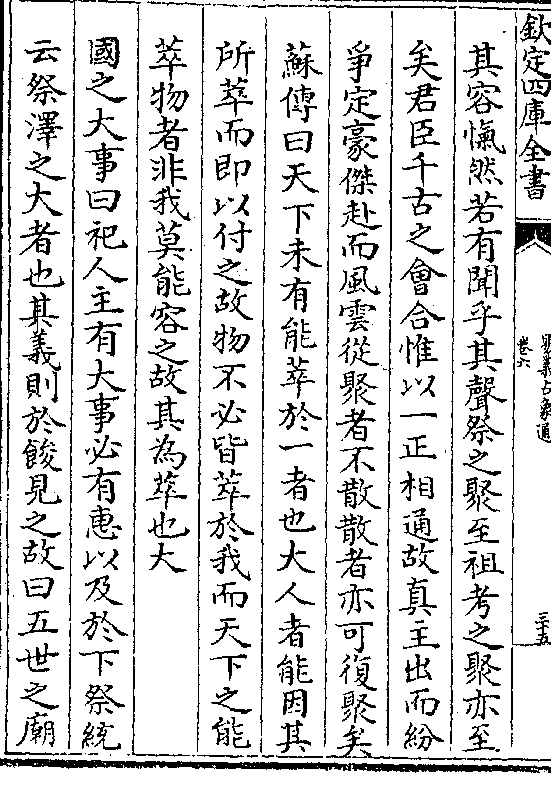 欽定四庫全書
易義古象通
卷六
三十五
其容愾然若有聞乎其聲祭之聚至祖考之聚亦至
矣君臣千古之會合惟以一正相通故真主出而紛
爭定豪傑赴而風雲從聚者不散散者亦可復聚矣
蘇傳曰天下未有能萃於一者也大人者能因其
所萃而即以付之故物不必皆萃於我而天下之能
萃物者非我莫能容之故其為萃也大
國之大事曰祀人主有大事必有惠以及於下祭統
云祭澤之大者也其義則於餕見之故曰五世之廟